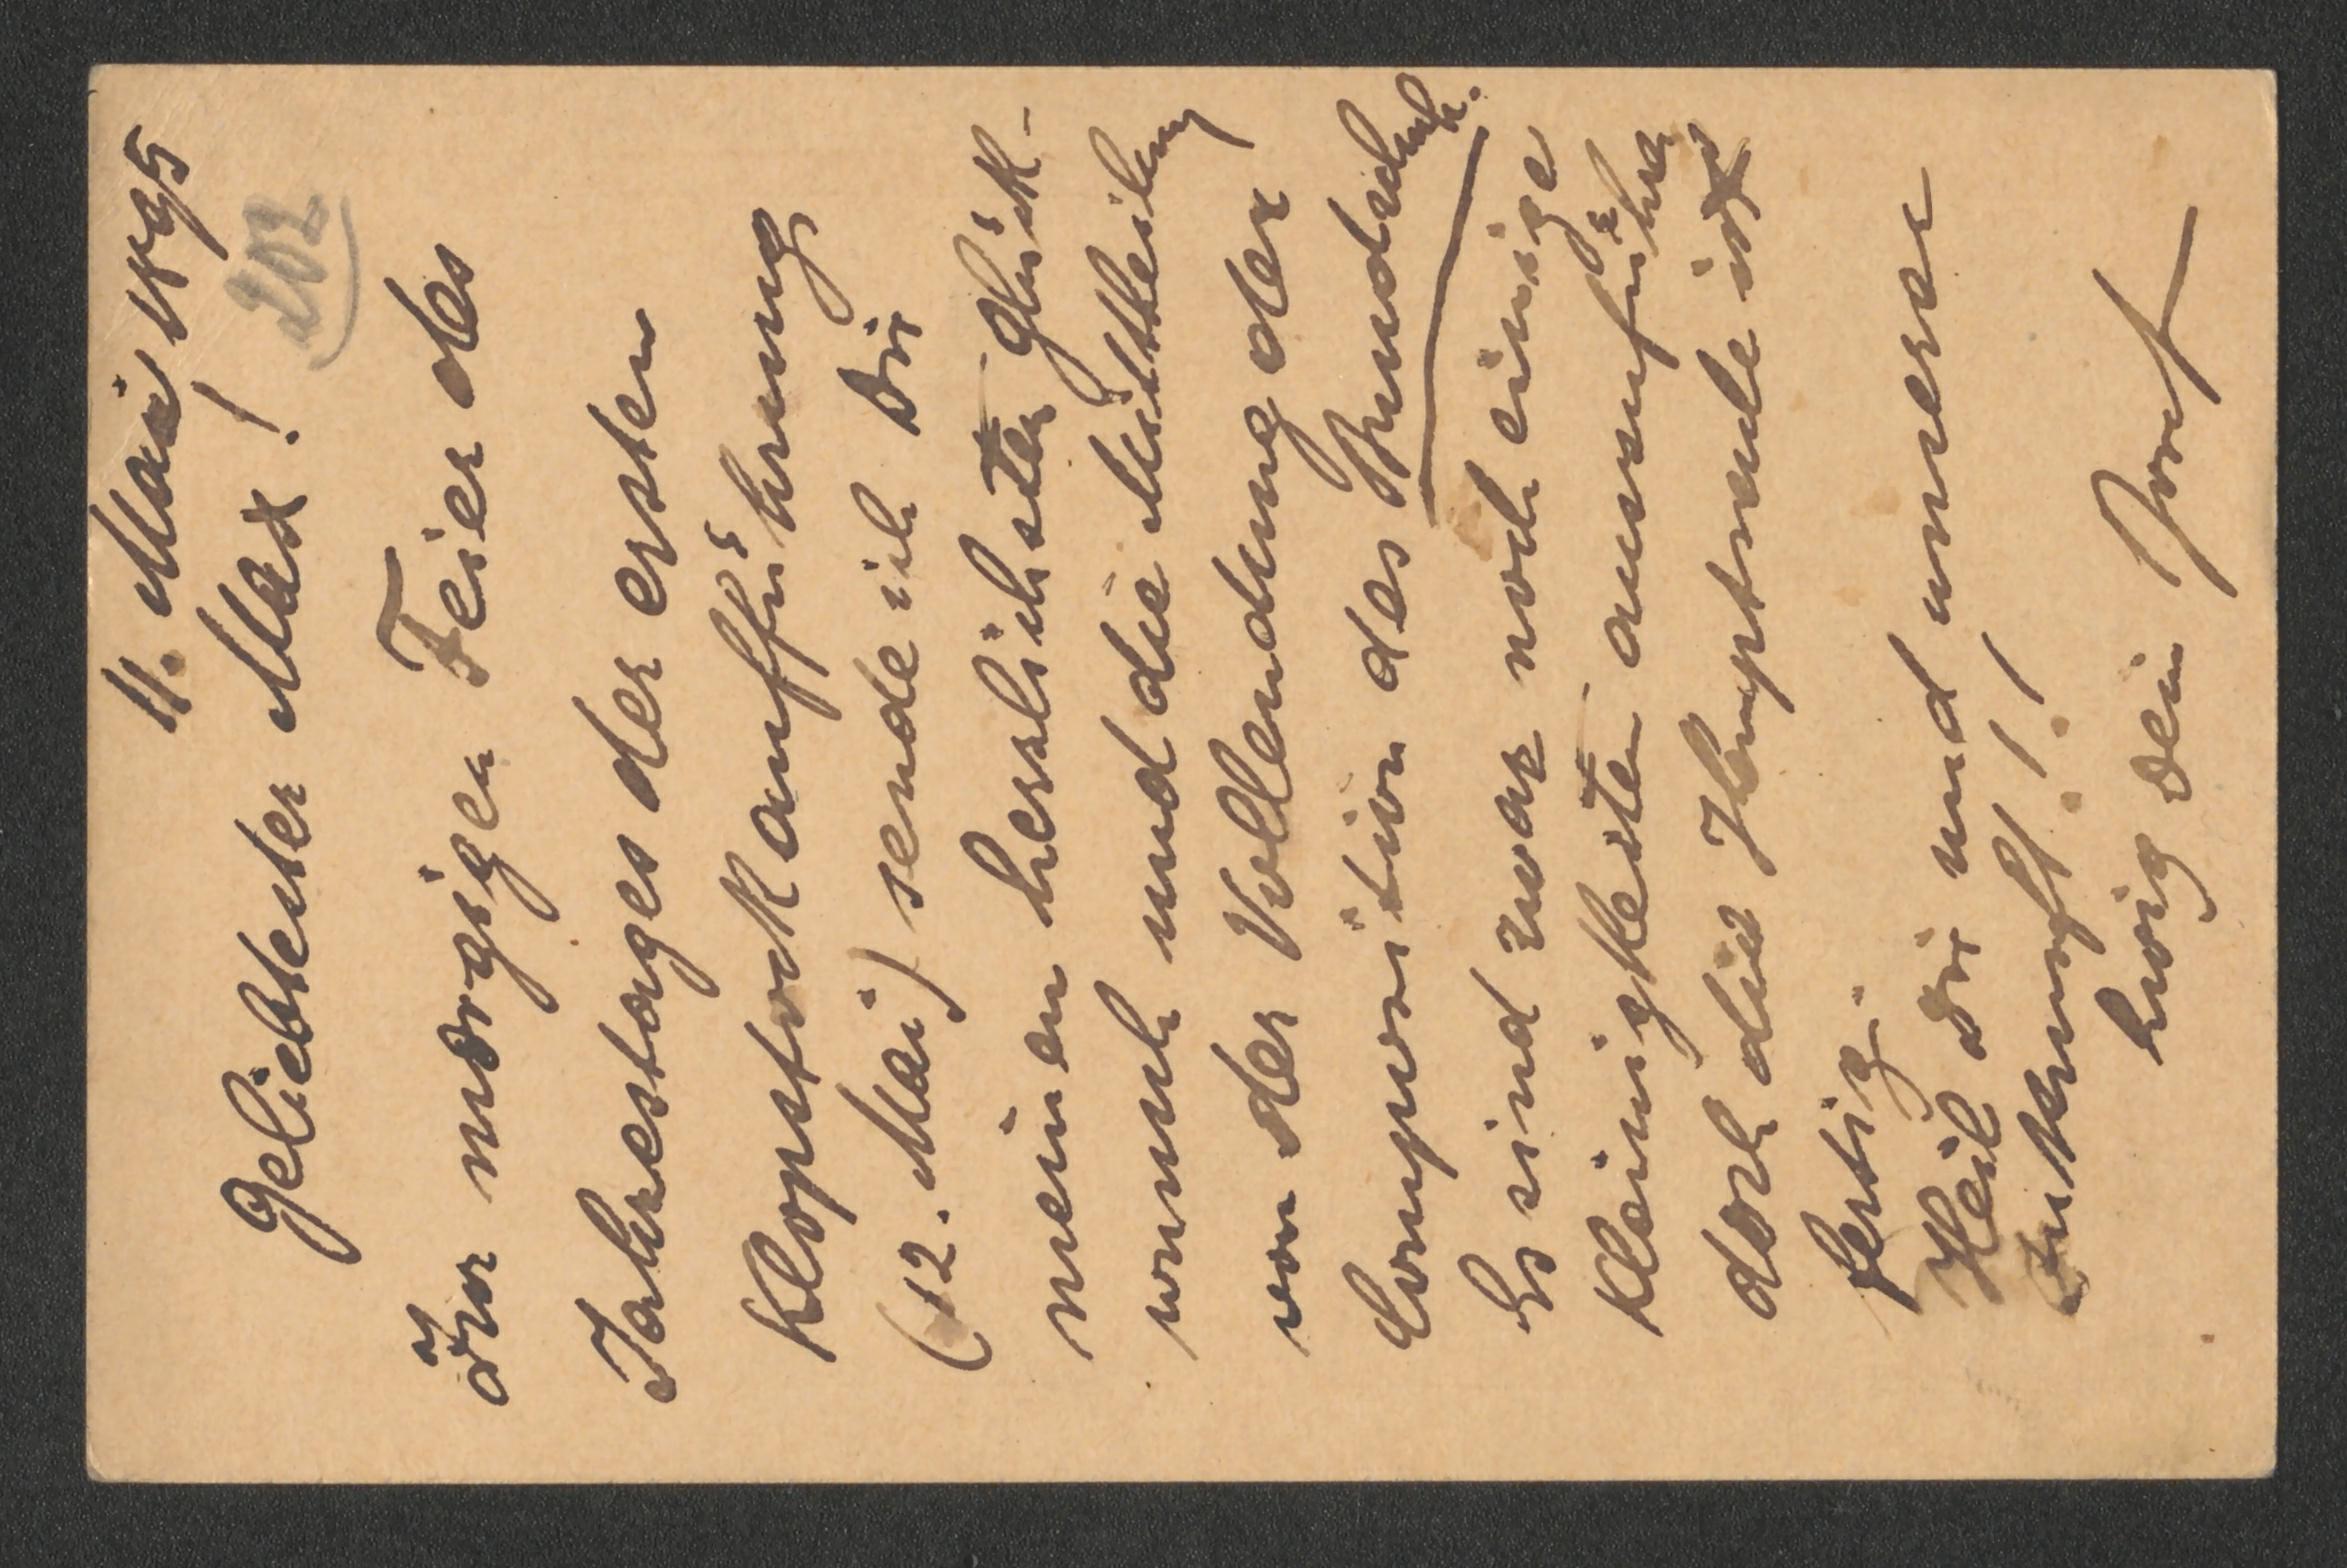 11. Mai 1895
202
Geliebtester Max!
Zur morgigen Feier des
Jahrestages der ersten
Klopstockaufführung
(12. Mai) sende ich Dir
meinen herzlichsten Glück-
wunsch und die Mittheilung
von der Vollendung der
Composition des Thunders
Es sind zwar noch einige
Kleinigkeiten auszuführen
doch die Hauptsache ist
fertig.
Heil Dir und unserer
Zukunft!!!
Ewig Dein Josef